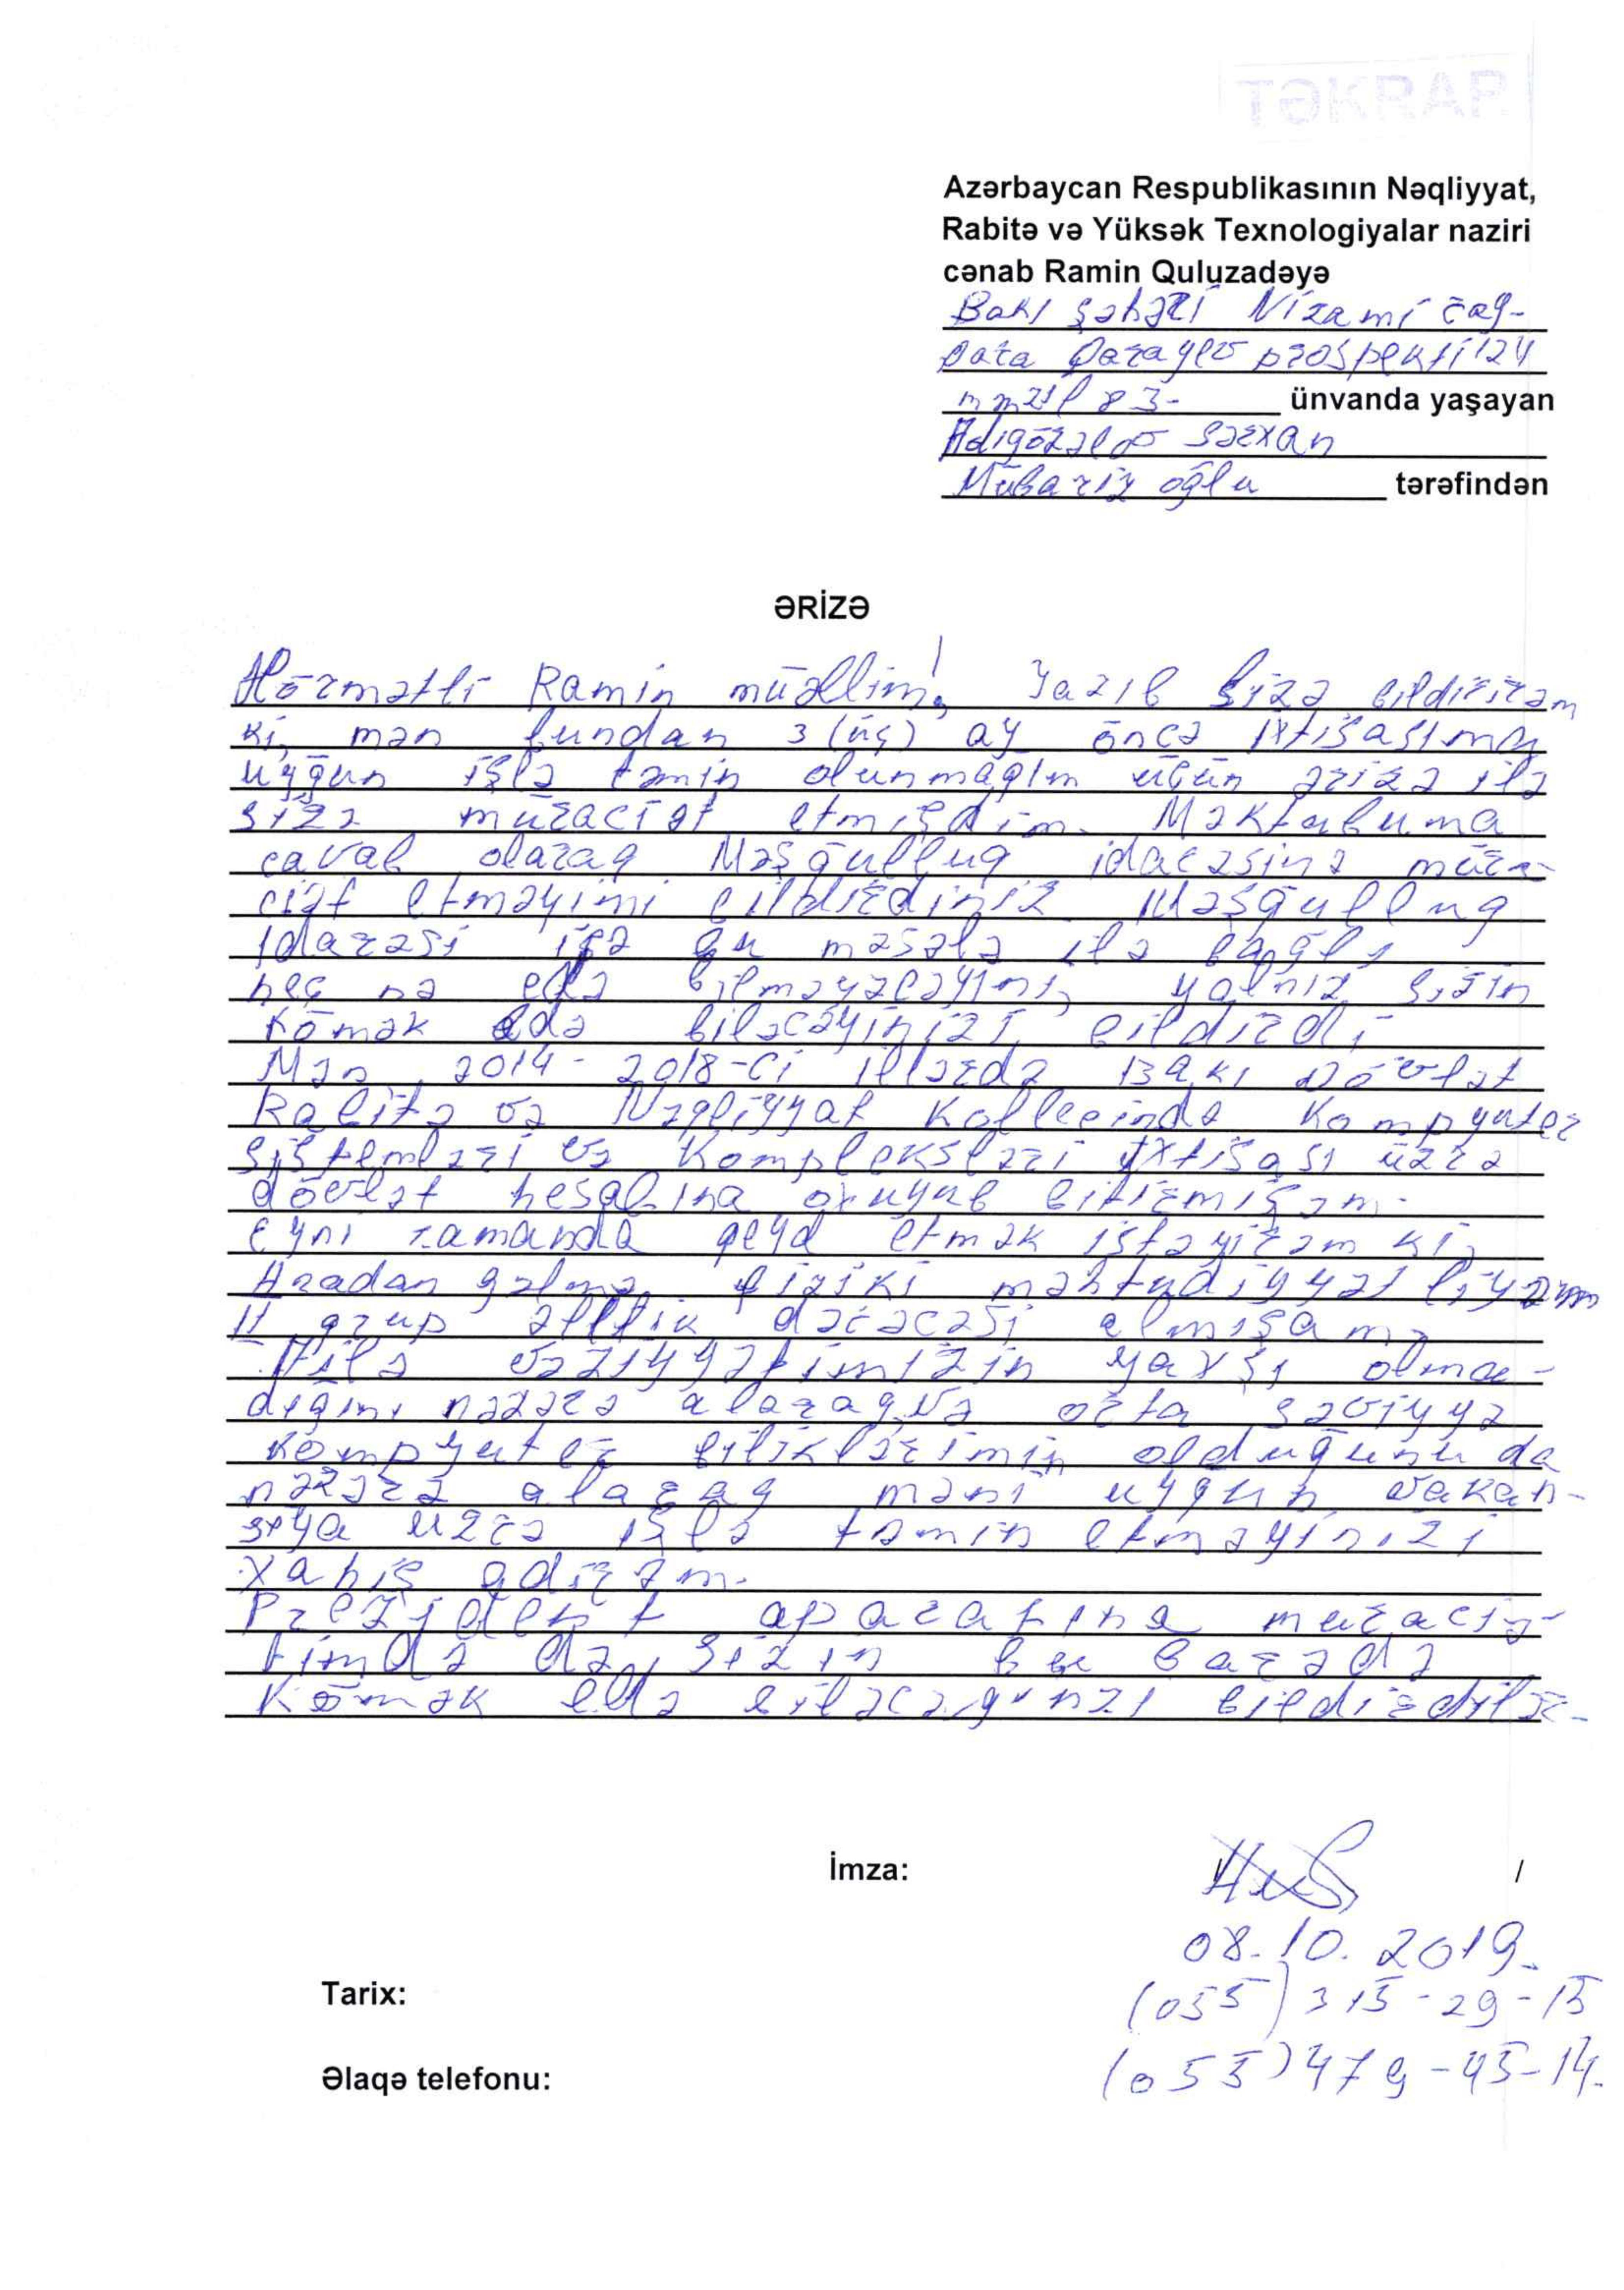 TƏKRAR
Azərbaycan Respublikasının Nəqliyyat,
Rabitə və Yüksək Texnologiyalar naziri
cənab Ramin Quluzadəyə
Bakı şəhəri Nizami ray-
Qara Qarayev prospekti 124
mənzil 83- ünvanda yaşayan
Adıgözəlov Sərxan
Mübariz oğlu tərəfindən
ƏRİZƏ
Hörmətli Ramin müəllim! Yazıb Sizə bildirirəm
ki, mən bundan 3 (üç) ay öncə ixtisasıma
uyğun işlə təmin olunmağım üçün ərizə ilə
sizə müraciət etmişdim. Məktubuma
cavab olaraq Məşğulluq idarəsinə müra-
ciət etməyimi bildirdiniz. Məşğulluq
idarəsi isə bu məsələ ilə bağlı
heç nə edə bilməyəcəyini, yalnız sizin
kömək edə biləcəyinizi bildirdi
Mən 2014-2018-ci illərdə Bakı Dövlət
Rabitə və Nəqliyyat Kollecində Kompyuter
sistemləri və Kompleksləri ixtisası üzrə
dövlət hesabına oxuyub bitirmişəm.
Eyni zamanda qeyd etmək istəyirəm ki,
Anadan gəlmə fiziki məhtudiyyətliyəm
II qrup əlillik dərəcəsi almışam.
Ailə vəziyyətimizin yaxşı olma-
dığını nəzərə alaraq və orta səviyyə
kompyuter biliklərimin olduğunu da
nəzərə alaraq məni uyğun vakan-
siya üzrə işlə təmin etməyinizi
xahiş edirəm.
Prezident aparatına müraciə-
timdə də, sizin bu barədə
Kömək edə biləcəyinizi bildirdilər.
İmza: /
08.10.2019.
Tarix:
(055) 315-29-15
Əlaqə telefonu:
(055) 479-45-14.